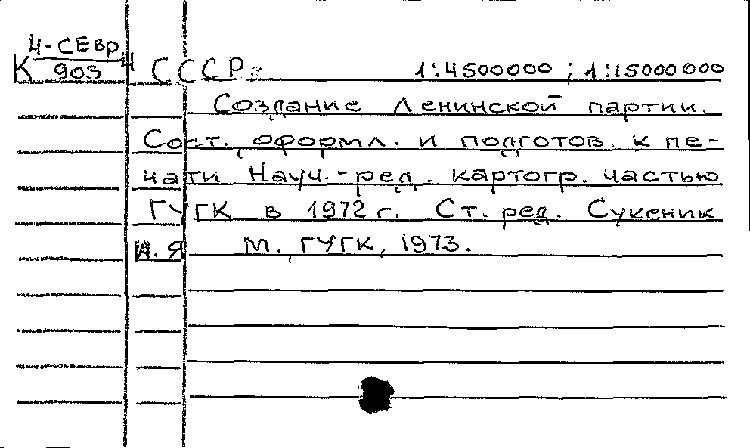 Ч-СЕВР
К 903 Ч СССР. 1:4500000 ; 1:15000000
Создание Ленинской партии.
Сост., оформл. и подготов. к пе-
чати Науч.-ред. картогр. частью
ГУГК в 1972 г. Ст. ред. Сукеник
И. Я М., ГУГК, 1973.